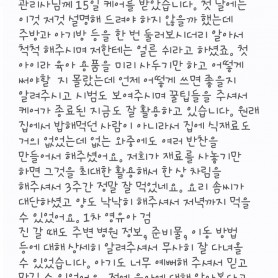 관리사님께 15일 케어를 받았습니다. 첫 날에는
이것 저것 설명해 드려야 하지 않을까 했는데
주방과 아기방 등을 한 번 둘러보시더니 알아서
척척 해주시며 저한테는 얼른 쉬라고 하셨죠. 첫
아이라 육아 용품을 미리 사두기만 하고 어떻게
써야할 지 몰랐는데 언제 어떻게 쓰면 좋을지
알려주시고 시범도 보여주시며 꿀팁들을 주셔서
케어가 종료된 지금도 잘 활용하고 있습니다. 원래
집에서 밥해먹던 사람이 아니라서 집에 식재료도
거의 없었는데 없는 와중에도 여러 반찬을
만들어서 해주셨어요. 저희가 재료를 사놓기만
하면 그것을 최대한 활용해서 한 상 차림을
해주셔서 3주간 정말 잘 먹었네요. 요리 솜씨가
대단하셨고 양도 낙낙히 해주셔서 저녁까지 먹을
수 있었어요. 1차 영유아 검
진 갈 때도 주변 병원 정보, 준비물, 이동 방법
등에 대해 상세히 알려주셔서 무사히 잘 다녀올
수 있었습니다. 아기도 너무 예뻐해 주셔서 믿고